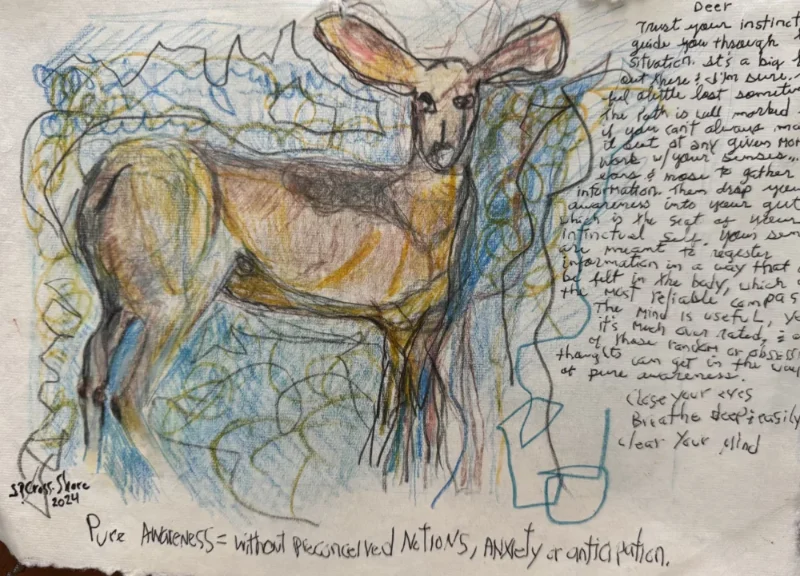 Deer
Trust your instinct
guide you through
situation. It's a big
out there & I'm sure
ful alittle lost sometim
The Path is well marked
if you can't always ma
it out at any given mom
work w/your senses...
ears & nose to gather
information. Then drop you
awareness into your gut
which is the seat of your
instinctual self. Your sen
are meant to register
information in a way that
be felt in the body, which
the most reliable compas
The Mind is useful, ye
it's much over rated, &
of those random or obsess
thoughts can get in the way
of pure awareness.
Close your eyes
Breathe deep & easily
Clear Your Mind
SPCross-Shore
2024
Pure AWARENESS = without preconceived NOTIONS, ANXIETY or anticipation.